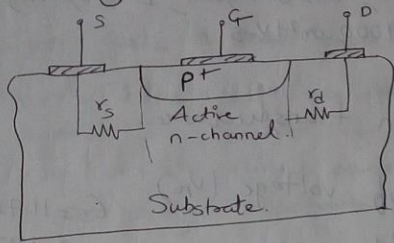 S G D
P+
rs Active rd
n-channel.
Substrate.